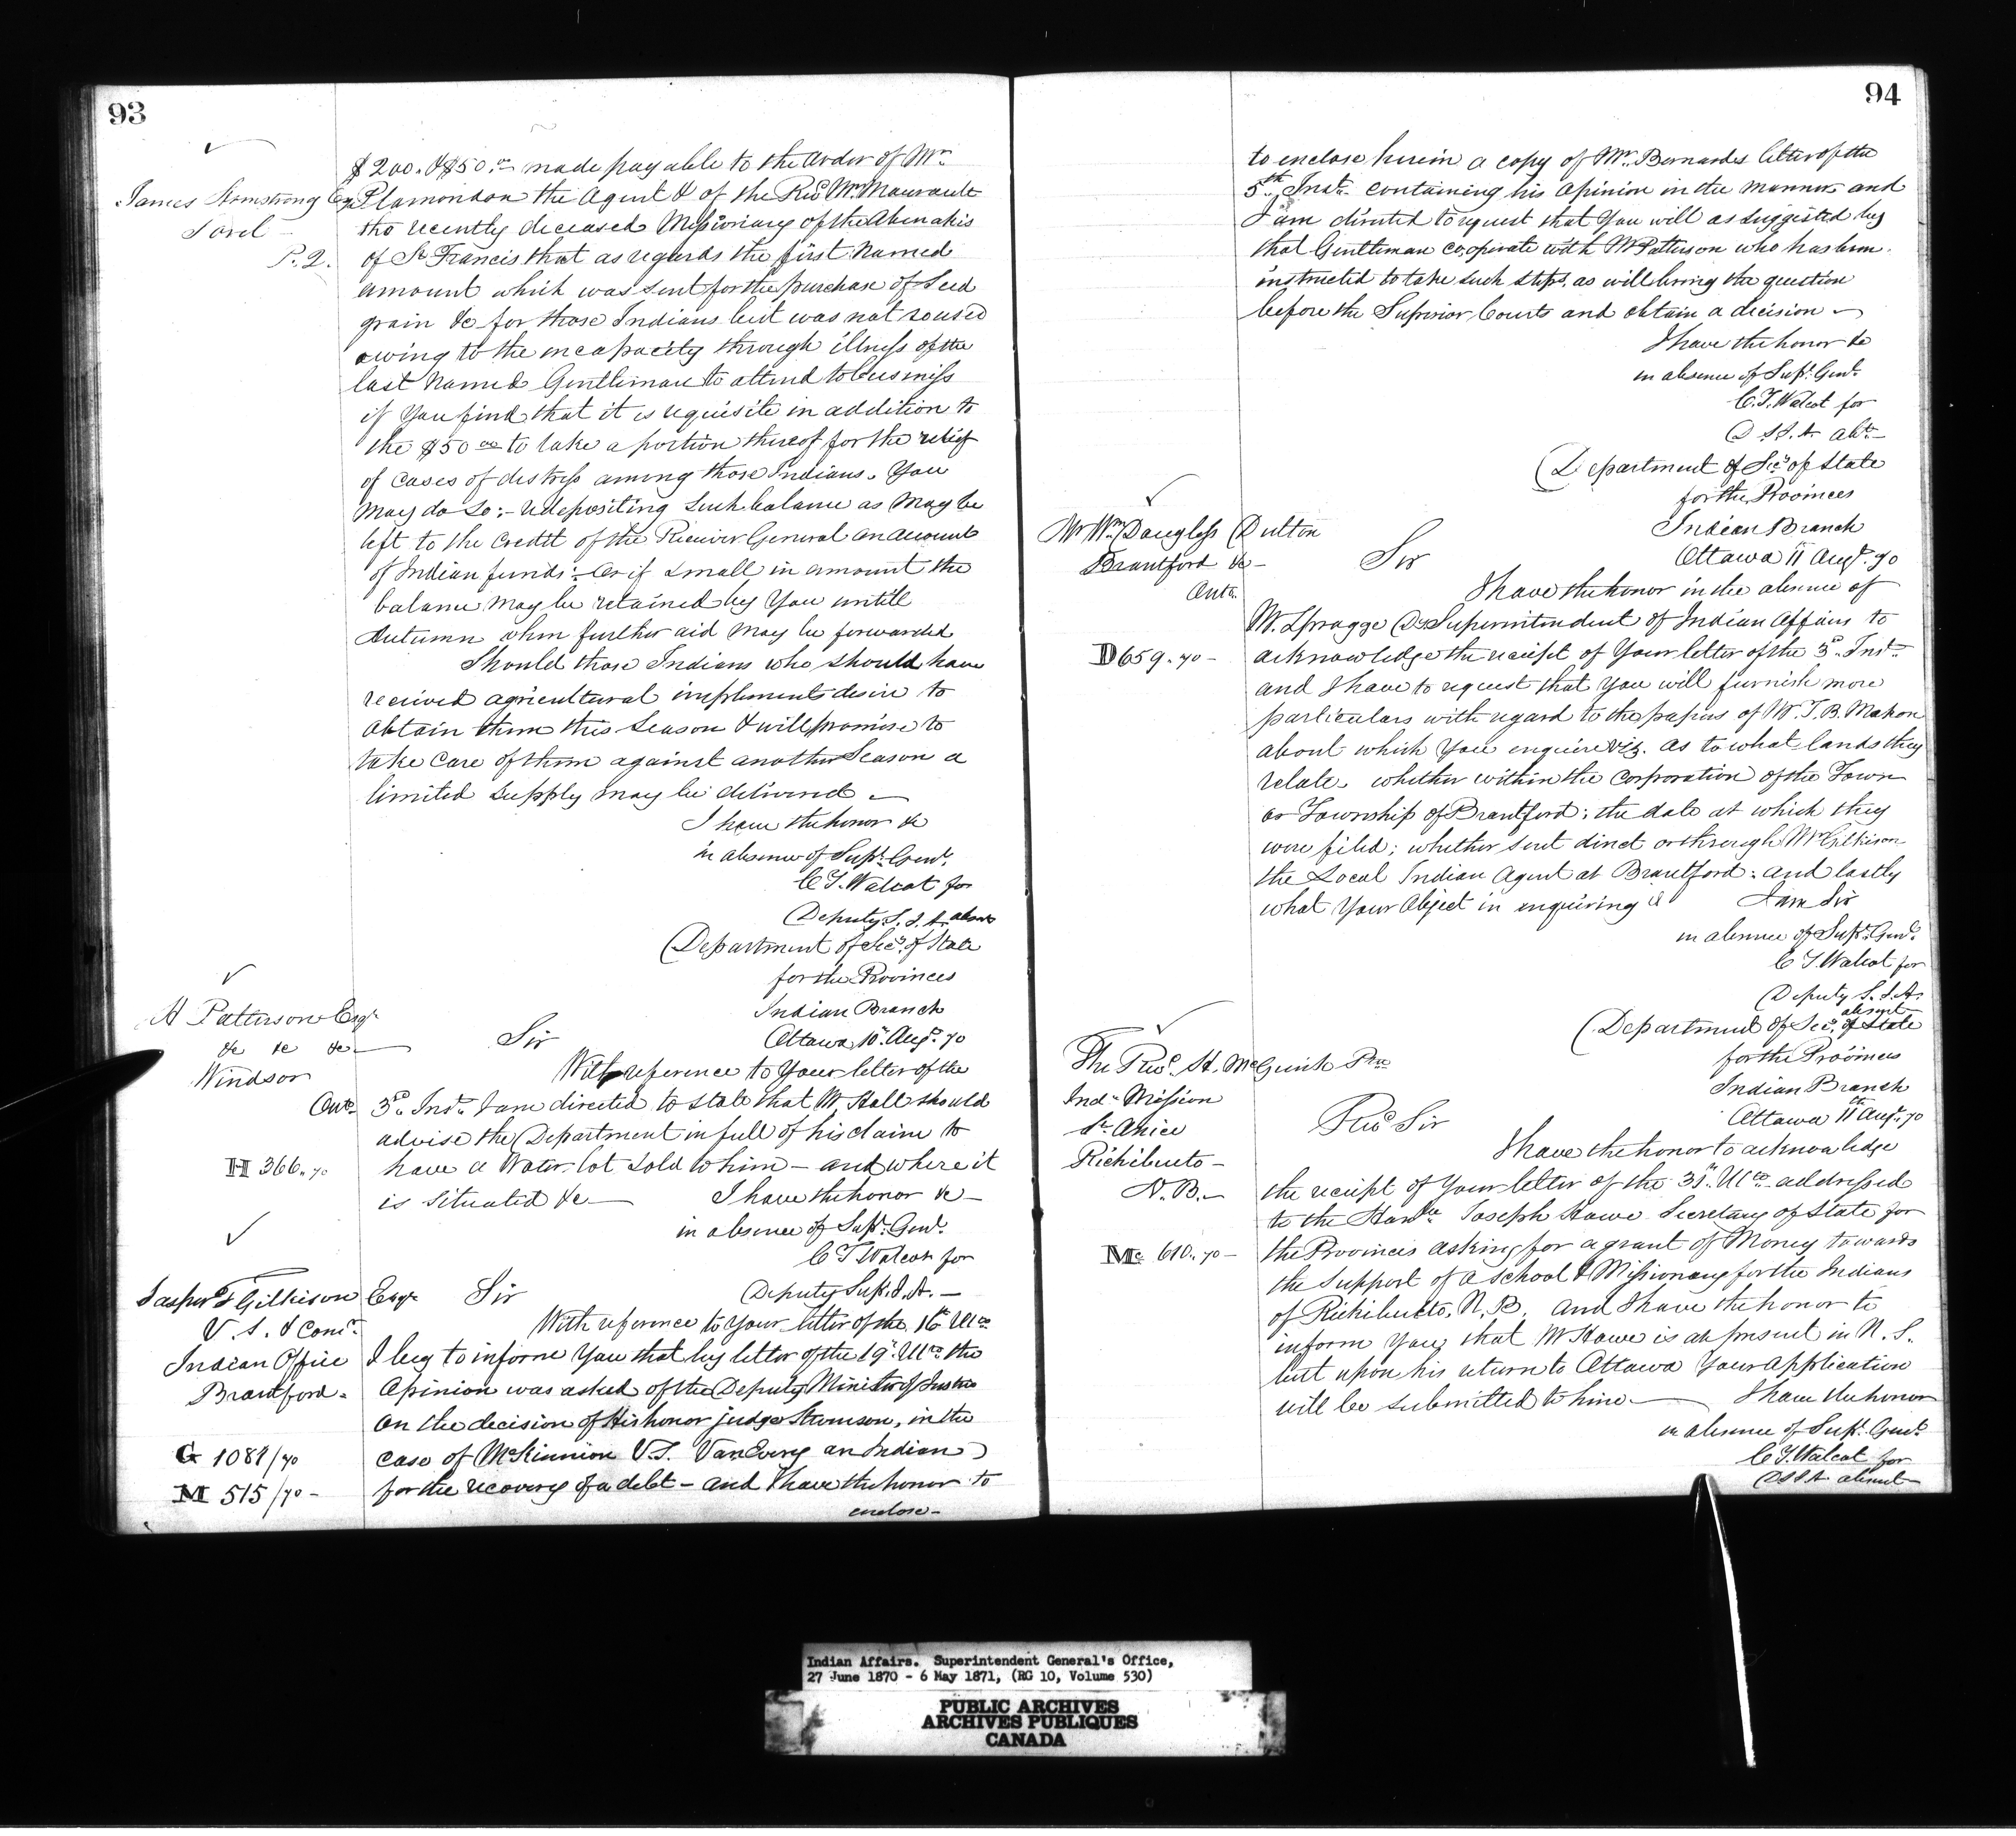 93
James Armstrong Esq
Sorel
P. 2.
$200. & $50.00 made payable to the order of Mr
Plamondon the Agent & of the Revd Mr Maurault
the recently deceased Missionary of the Abenakis
of St Francis that as regards the first named
amount which was sent for the purchase of Seed
grain &c for those Indians but was not so used
owing to the incapacity through illness of the
last named Gentleman to attend to business
if you find that it is requisite in addition to
the $50 00 to take a portion thereof for the relief
of cases of distress among those Indians. You
may do so:- redepositing such balance as may be
left to the credit of the Receiver General on account
of Indian funds:- or if small in amount the
balance may be retained by you untill
Autumn when further aid may be forwarded
Should those Indians who should have
received agricultural implements desire to
obtain them this Season & will promise to
take care of them against another Season a
limited supply may be delivered -
I have the honor &c
in absence of Supt. Genl.
C T. Walcot for
Deputy S. I. A. absent
Department of Secy. of State
for the Provinces
Indian Branch
Ottawa 10th Augt. 70
A Patterson Esqr
&c &c &c
Windsor
Onto
H 366. 70
Sir
With reference to your letter of the
3rd. Inst. I am directed to state that Mr Hall should
advise the Department in full of his claim to
have a Water lot sold to him - and where it
is situated &c - I have the honor &c -
in absence of Supt. Genl.
C T Walcot for
Deputy Supt. I. A. -
Jasper T Gilkison Esqr
V. S. & Comr.
Indian Office
Brantford -
G 1081/70
M 515/70 -
Sir
With reference to your letter of the 16th Ulto
I beg to inform you that by letter of the 19th. Ulto. the
Opinion was asked of the Deputy Minister of Justice
on the decision of His honor judge Stevenson, in the
case of McKinnion V.S. VanEvery an Indian
for the recovery of a debt - and I have the honor to
enclose -
94
to enclose herein a copy of Mr. Bernards letter of the
5th. Inst. containing his opinion in the manner and
I am directed to request that you will as suggested by
that Gentleman co,operate with Mr Patterson who has been
instructed to take such steps as will bring the question
before the Superior Courts and obtain a decision -
I have the honor &c
in absence of Supt. Genl.
C. T. Walcot for
D S. I. A. abt. -
Department of Secy of State
for the Provinces
Indian Branch
Ottawa 11 Augt. 70
Mr Wm Douglass Dutton
Brantford &c -
Onto.
D 659. 70 -
Sir
I have the honor in the absence of
Mr. Spragge Dy Superintendent of Indian Affairs to
acknowledge the receipt of Your letter of the 3rd. Inst.
and I have to request that you will furnish more
particulars with regard to the papers of Mr. T. B. Mahon
about which you enquire viz. as to what lands they
relate. whether within the Corporation of the Town
or Township of Brantford: the date at which they
were filed; whether sent direct or through Mr Gilkison
the Local Indian Agent at Brantford: and lastly
what Your object in enquiring is I am Sir
in absence of Supt. Genl.
C T. Walcot for
Deputy S. I. A.
absent
Department of Secy. of State
for the Provinces
Indian Branch
Ottawa 11th Augt. 70
The Revd. H. McGuirk
Indn Mission
St. Anice
Richibucto -
N. B. -
Mc 610. 70 -
Revd Sir
I have the honor to acknowledge
the receipt of Your letter of the 31st. Ulto. addressed
to the Honble Joseph Howe Secretary of State for
the Provinces asking for a grant of Money towards
the support of a School & Missionary for the Indians
of Richibucto, N. B. and I have the honor to
inform you that Mr Howe is at present in N. S.
but upon his return to Ottawa Your application
will be submitted to him - I have the honor
in absence of Supt. Genl.
C T. Walcot for
D S I A absent -
Indian Affairs. Superintendent General's Office,
27 June 1870 - 6 May 1871, (RG 10, Volume 530)
PUBLIC ARCHIVES
ARCHIVES PUBLIQUES
CANADA